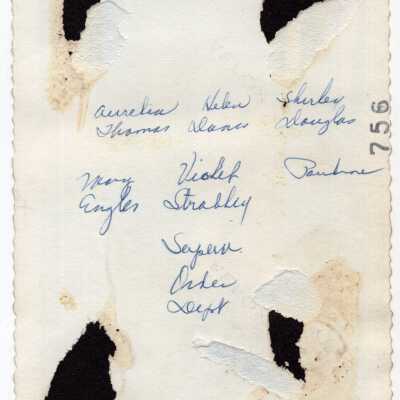 Aurelia Helen Shirley
Thomas Davis Douglas
756
Mary Violet Pauline
Engles Strabley
Superv.
Order
Dept